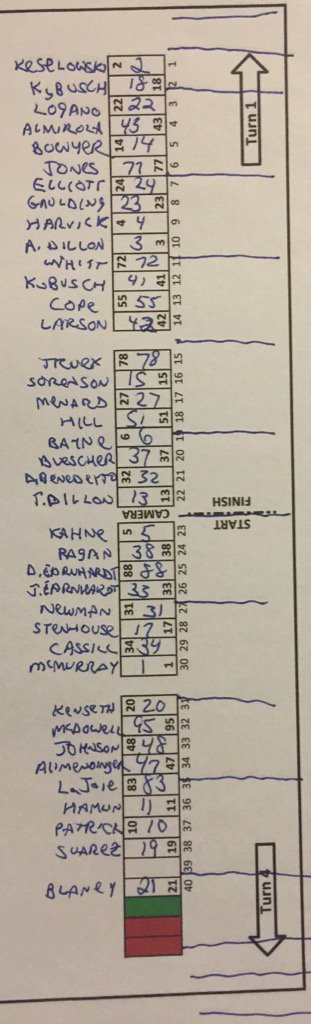 KESELOWSKI 2 2 1
Ky BUSCH 18 18 2
LOGANO 22 22 3
ALMIROLA 43 43 4
BOWYER 14 14 5
JONES 77 77 6
ELLIOTT 24 24 7
GAULDING 23 23 8
HARVICK 4 4 9
A. DILLON 3 3 10
WHITT 72 72 11
KuBUSCH 41 41 12
COPE 55 55 13
LARSON 42 42 14
Turn 1
TRUEX 78 78 15
SORENSON 15 15 16
MENARD 27 27 17
HILL 51 51 18
BAYNE 6 6 19
BUESCHER 37 37 20
DiBENEDETTO 32 32 21
T. DILLON 13 13 22
CAMERA
START
FINISH
KAHNE 5 5 23
RAGAN 38 38 24
D. EARNHARDT 88 88 25
J. EARNHARDT 33 33 26
NEWMAN 31 31 27
STENHOUSE 17 17 28
CASSILL 34 34 29
McMURRAY 1 1 30
KENSETH 20 20 31
McDOWELL 95 95 32
JOHNSON 48 48 33
Allmendinger 47 47 34
LaJoie 83 83 35
HAMLIN 11 11 36
PATRICK 10 10 37
SUAREZ 19 19 38
39
BLANEY 21 21 40
Turn 4